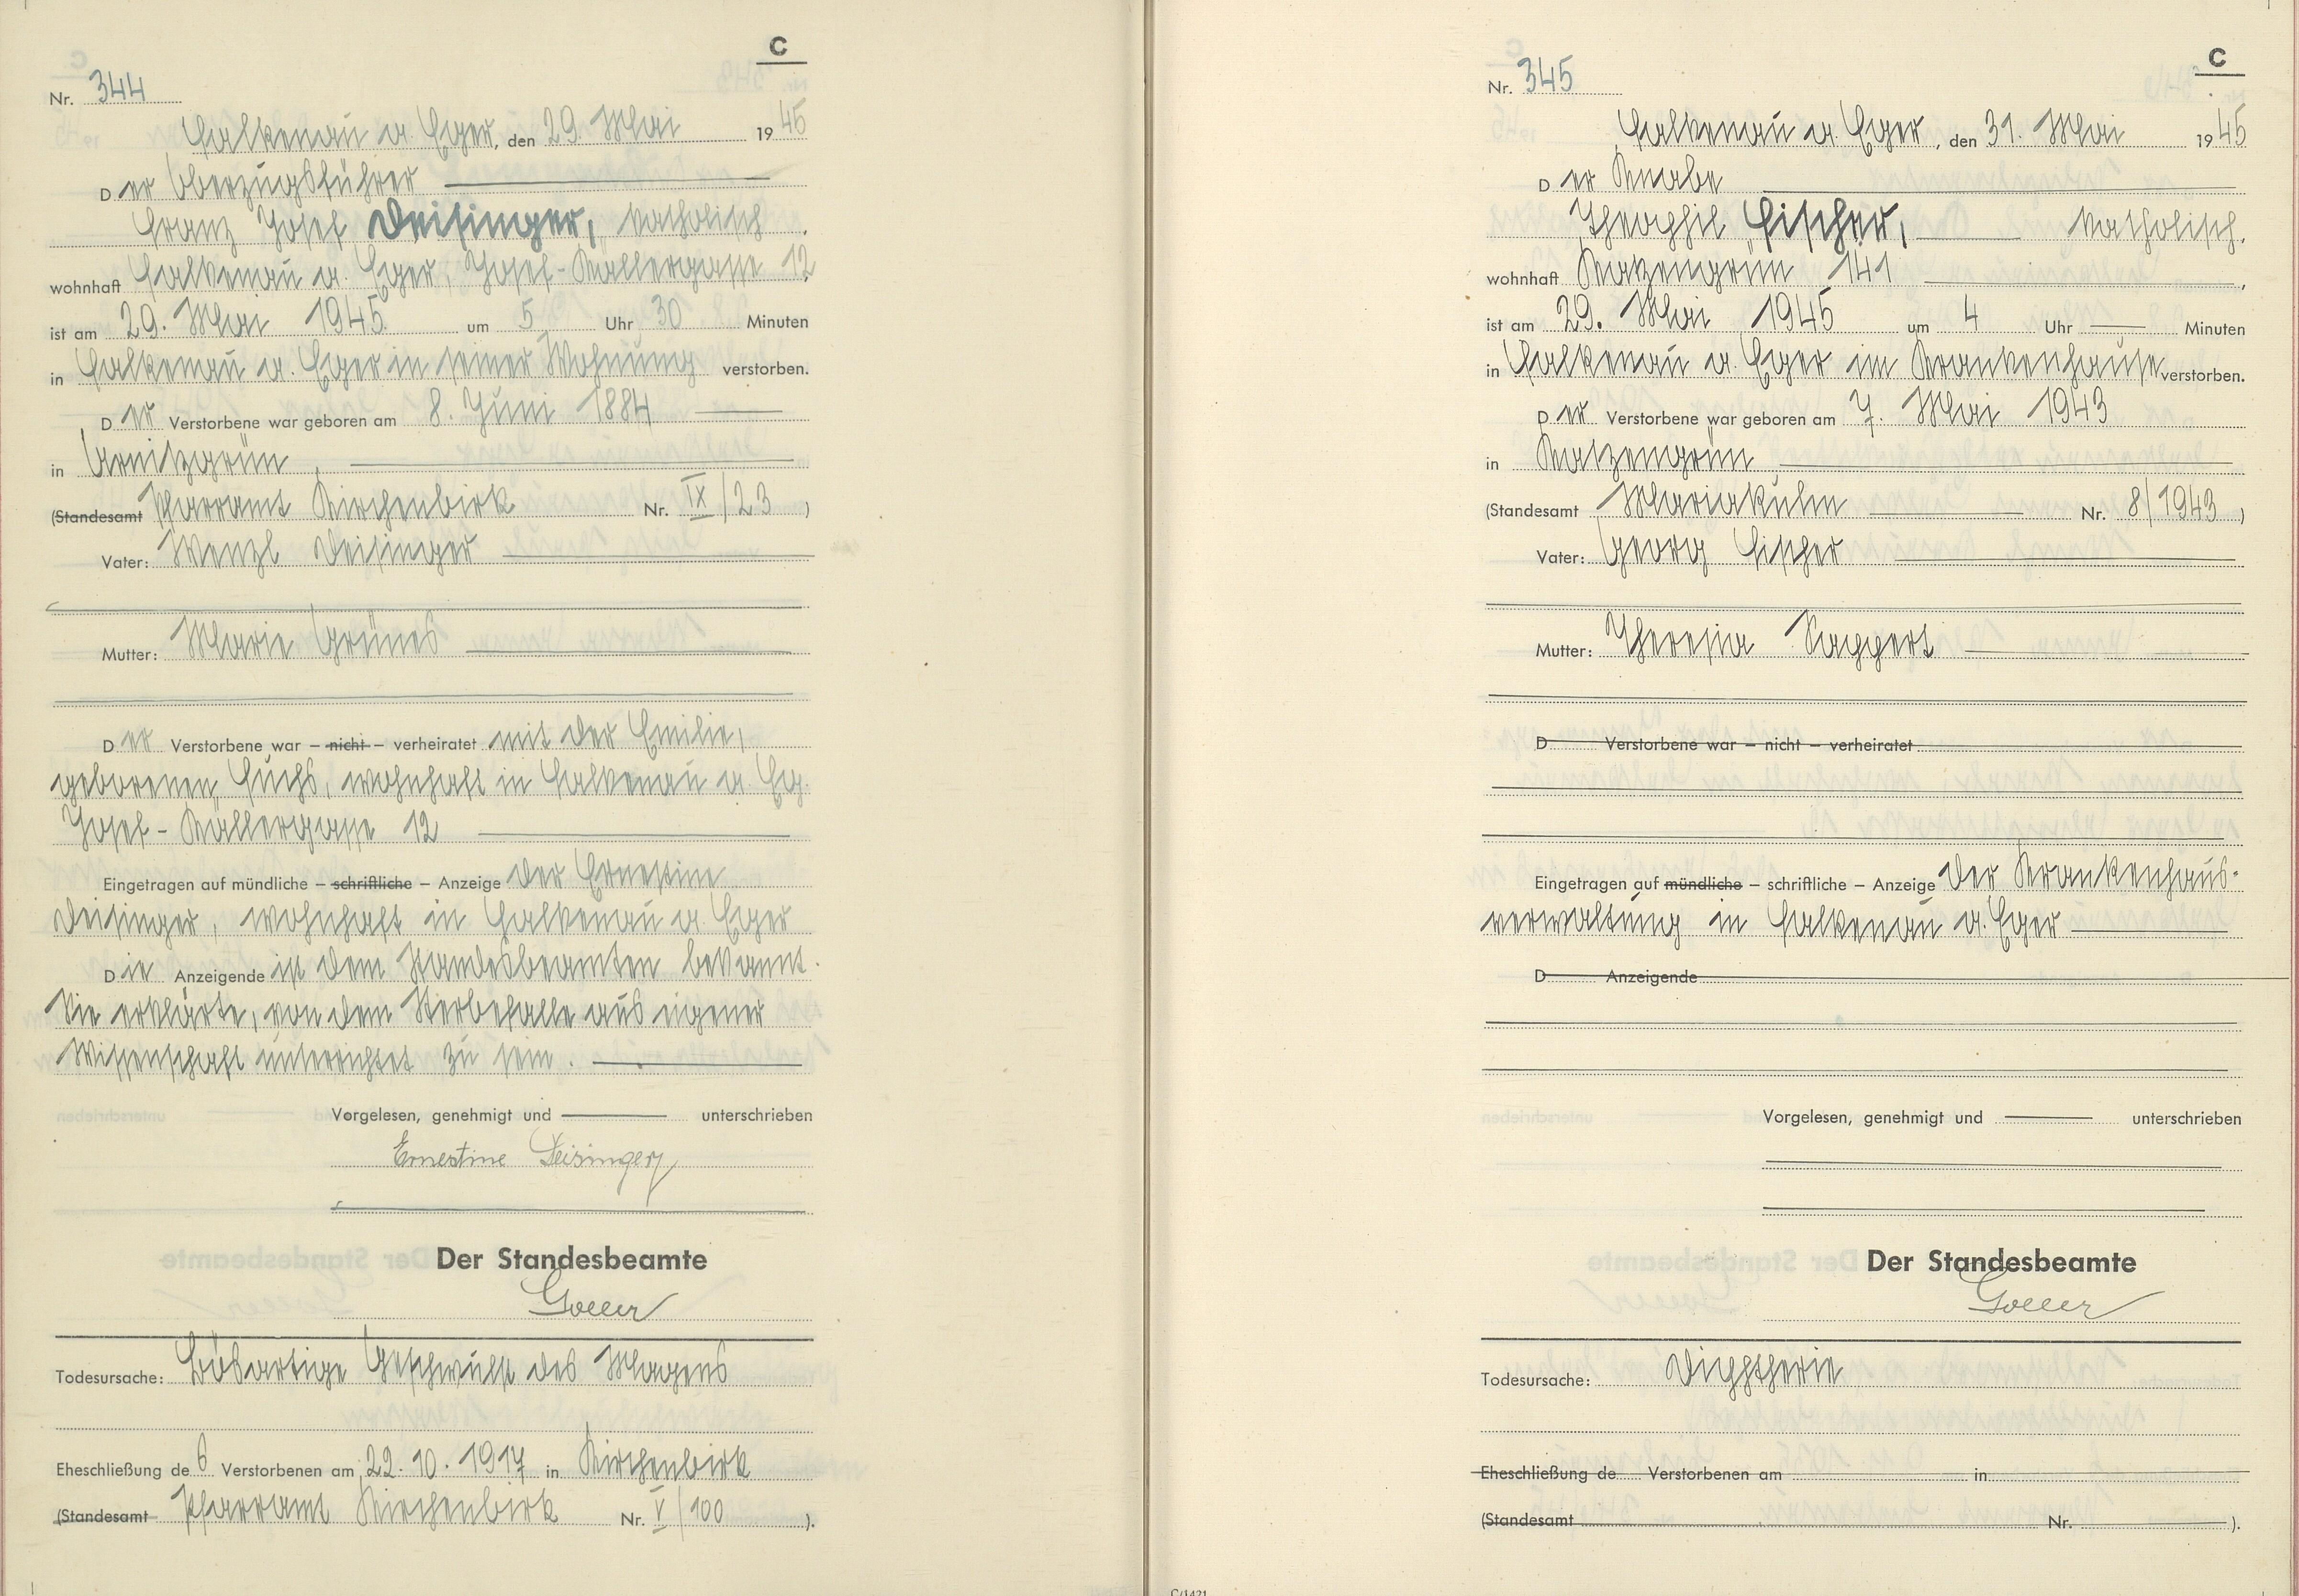 C
Nr. 344
Falkenau a. Eger, den 29. Mai 1945
Der Oberzugsführer
Franz Josef Deisinger, katholisch
wohnhaft Falkenau a. Eger, Josef-Kallergasse 12,
ist am 29. Mai 1945 um 5 Uhr 30 Minuten
in Falkenau a. Eger in seiner Wohnung verstorben.
Der Verstorbene war geboren am 8. Juni 1884
in Arnitzgrün,
(Standesamt Pfarramt Kirchenbirk Nr. IX/23)
Vater: Wenzl Deisinger
Mutter: Marie Grünes
Der Verstorbene war – nicht – verheiratet mit der Emilie,
geborenen Fuchs, wohnhaft in Falkenau a. Eg.
Josef-Kallergasse 12
Eingetragen auf mündliche – schriftliche – Anzeige der Ernestine
Deisinger, wohnhaft in Falkenau a. Eger
Die Anzeigende ist dem Standesbeamten bekannt.
Sie erklärte, von dem Sterbefalle aus eigener
Wissenschaft unterrichtet zu sein.
Vorgelesen, genehmigt und unterschrieben
Ernestine Deisinger
Der Standesbeamte
Goller
Todesursache: Bösartige Geschwulst des Magens
Eheschließung des Verstorbenen am 22. 10. 1917 in Kirchenbirk
(Standesamt Pfarramt Kirchenbirk Nr. V/100).
C
Nr. 345
Falkenau a. Eger, den 31. Mai 1945
Der Knabe
Theophil Fischer, katholisch,
wohnhaft Katzengrün 141,
ist am 29. Mai 1945 um 4 Uhr Minuten
in Falkenau a. Eger im Krankenhause verstorben.
Der Verstorbene war geboren am 7. Mai 1943
in Katzengrün
(Standesamt Mariakulm Nr. 8/1943)
Vater: Georg Fischer
Mutter: Theresia Saggert
D Verstorbene war – nicht – verheiratet
Eingetragen auf mündliche – schriftliche – Anzeige der Krankenhaus-
verwaltung in Falkenau a. Eger
D Anzeigende
Vorgelesen, genehmigt und unterschrieben
Der Standesbeamte
Goller
Todesursache: Diphtherie
Eheschließung de Verstorbenen am in
(Standesamt Nr. ).